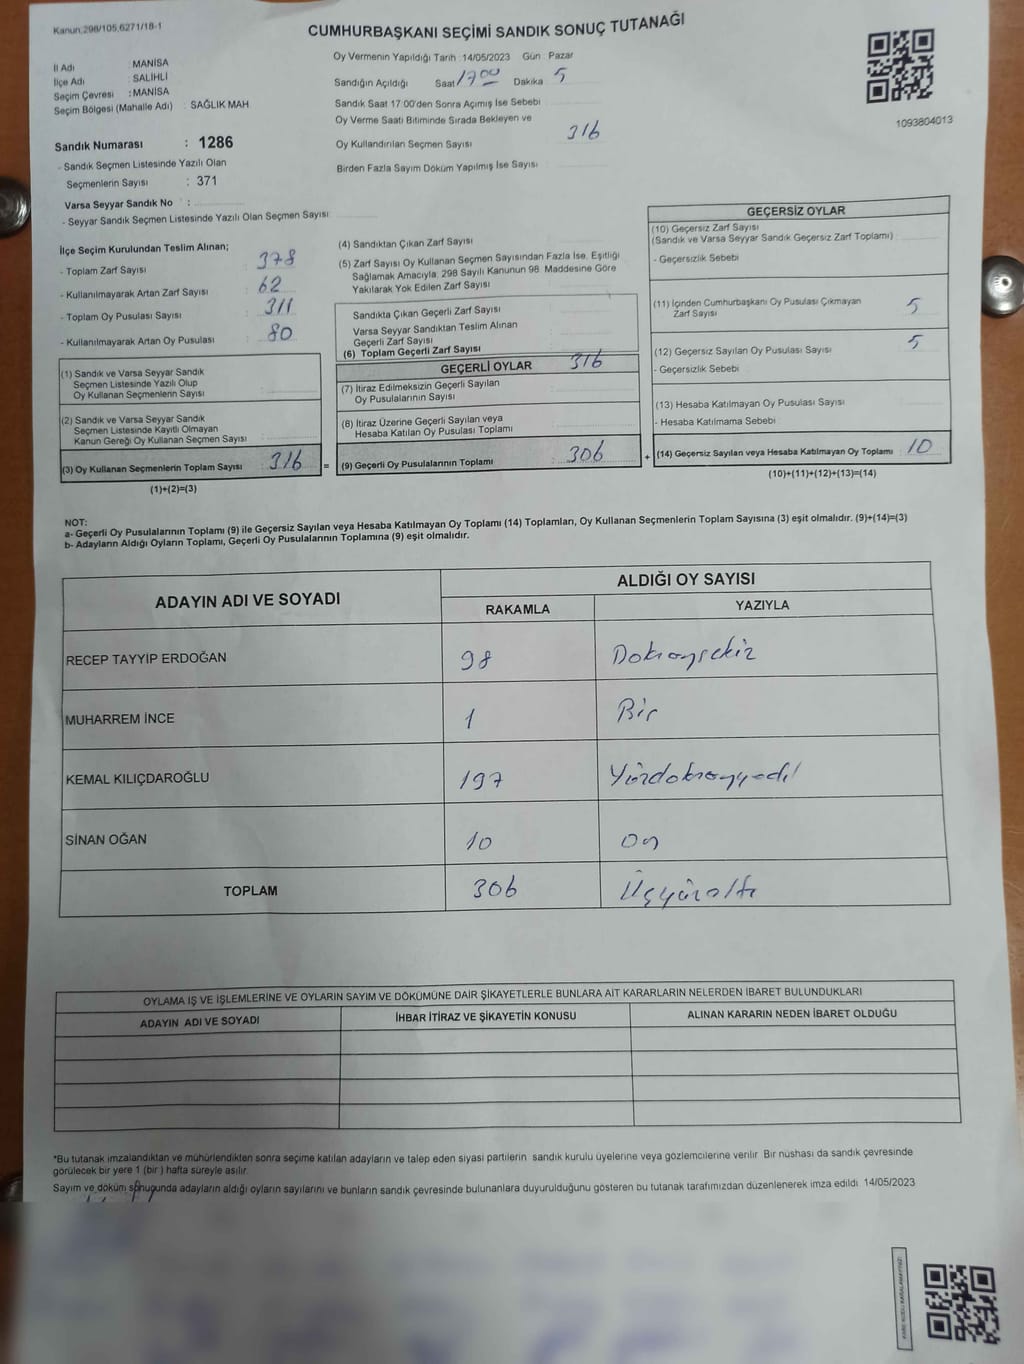 Kanun,298/105,6271/18-1
CUMHURBAŞKANI SEÇİMİ SANDIK SONUÇ TUTANAĞI
İl Adı : MANİSA
İlçe Adı : SALİHLİ
Seçim Çevresi : MANİSA
Seçim Bölgesi (Mahalle Adı) : SAĞLIK MAH.
Oy Vermenin Yapıldığı Tarih : 14/05/2023 Gün : Pazar
Sandığın Açıldığı Saat 17 00 Dakika 5
Sandık Saat 17:00'den Sonra Açımış İse Sebebi
Oy Verme Saati Bitiminde Sırada Bekleyen ve
Oy Kullandırılan Seçmen Sayısı 316
Birden Fazla Sayım Döküm Yapılmış İse Sayısı
1093804013
Sandık Numarası : 1286
- Sandık Seçmen Listesinde Yazılı Olan
Seçmenlerin Sayısı : 371
Varsa Seyyar Sandık No :
- Seyyar Sandık Seçmen Listesinde Yazılı Olan Seçmen Sayısı
İlçe Seçim Kurulundan Teslim Alınan;
- Toplam Zarf Sayısı 378
- Kullanılmayarak Artan Zarf Sayısı : 62
- Toplam Oy Pusulası Sayısı : 311
- Kullanılmayarak Artan Oy Pusulası : 80
(1) Sandık ve Varsa Seyyar Sandık
Seçmen Listesinde Yazılı Olup
Oy Kullanan Seçmenlerin Sayısı
(2) Sandık ve Varsa Seyyar Sandık
Seçmen Listesinde Kayıtlı Olmayan
Kanun Gereği Oy Kullanan Seçmen Sayısı
(3) Oy Kullanan Seçmenlerin Toplam Sayısı : 316 =
(1)+(2)=(3)
(4) Sandıktan Çıkan Zarf Sayısı
(5) Zarf Sayısı Oy Kullanan Seçmen Sayısından Fazla İse, Eşitliği
Sağlamak Amacıyla, 298 Sayılı Kanunun 98. Maddesine Göre
Yakılarak Yok Edilen Zarf Sayısı
Sandıkta Çıkan Geçerli Zarf Sayısı
Varsa Seyyar Sandıktan Teslim Alınan
Geçerli Zarf Sayısı
(6) Toplam Geçerli Zarf Sayısı 316
GEÇERLİ OYLAR
(7) İtiraz Edilmeksizin Geçerli Sayılan
Oy Pusulalarının Sayısı
(8) İtiraz Üzerine Geçerli Sayılan veya
Hesaba Katılan Oy Pusulası Toplamı
(9) Geçerli Oy Pusulalarının Toplamı : 306 +
GEÇERSİZ OYLAR
(10) Geçersiz Zarf Sayısı
(Sandık ve Varsa Seyyar Sandık Geçersiz Zarf Toplamı) :
- Geçersizlik Sebebi
(11) İçinden Cumhurbaşkanı Oy Pusulası Çıkmayan
Zarf Sayısı 5
(12) Geçersiz Sayılan Oy Pusulası Sayısı 5
- Geçersizlik Sebebi
(13) Hesaba Katılmayan Oy Pusulası Sayısı
- Hesaba Katılmama Sebebi
(14) Geçersiz Sayılan veya Hesaba Katılmayan Oy Toplamı : 10
(10)+(11)+(12)+(13)=(14)
NOT:
a- Geçerli Oy Pusulalarının Toplamı (9) ile Geçersiz Sayılan veya Hesaba Katılmayan Oy Toplamı (14) Toplamları, Oy Kullanan Seçmenlerin Toplam Sayısına (3) eşit olmalıdır. (9)+(14)=(3)
b- Adayların Aldığı Oyların Toplamı, Geçerli Oy Pusulalarının Toplamına (9) eşit olmalıdır.
ADAYIN ADI VE SOYADI ALDIĞI OY SAYISI
RAKAMLA YAZIYLA
RECEP TAYYİP ERDOĞAN 98 Doksansekiz
MUHARREM İNCE 1 Bir
KEMAL KILIÇDAROĞLU 197 Yüzdoksanyedi
SİNAN OĞAN 10 On
TOPLAM 306 Üçyüzaltı
OYLAMA İŞ VE İŞLEMLERİNE VE OYLARIN SAYIM VE DÖKÜMÜNE DAİR ŞİKAYETLERLE BUNLARA AİT KARARLARIN NELERDEN İBARET BULUNDUKLARI
ADAYIN ADI VE SOYADI İHBAR İTİRAZ VE ŞİKAYETİN KONUSU ALINAN KARARIN NEDEN İBARET OLDUĞU
*Bu tutanak imzalandıktan ve mühürlendikten sonra seçime katılan adayların ve talep eden siyasi partilerin sandık kurulu üyelerine veya gözlemcilerine verilir. Bir nüshası da sandık çevresinde
görülecek bir yere 1 (bir) hafta süreyle asılır.
Sayım ve döküm sonucunda adayların aldığı oyların sayılarını ve bunların sandık çevresinde bulunanlara duyurulduğunu gösteren bu tutanak tarafımızdan düzenlenerek imza edildi. 14/05/2023